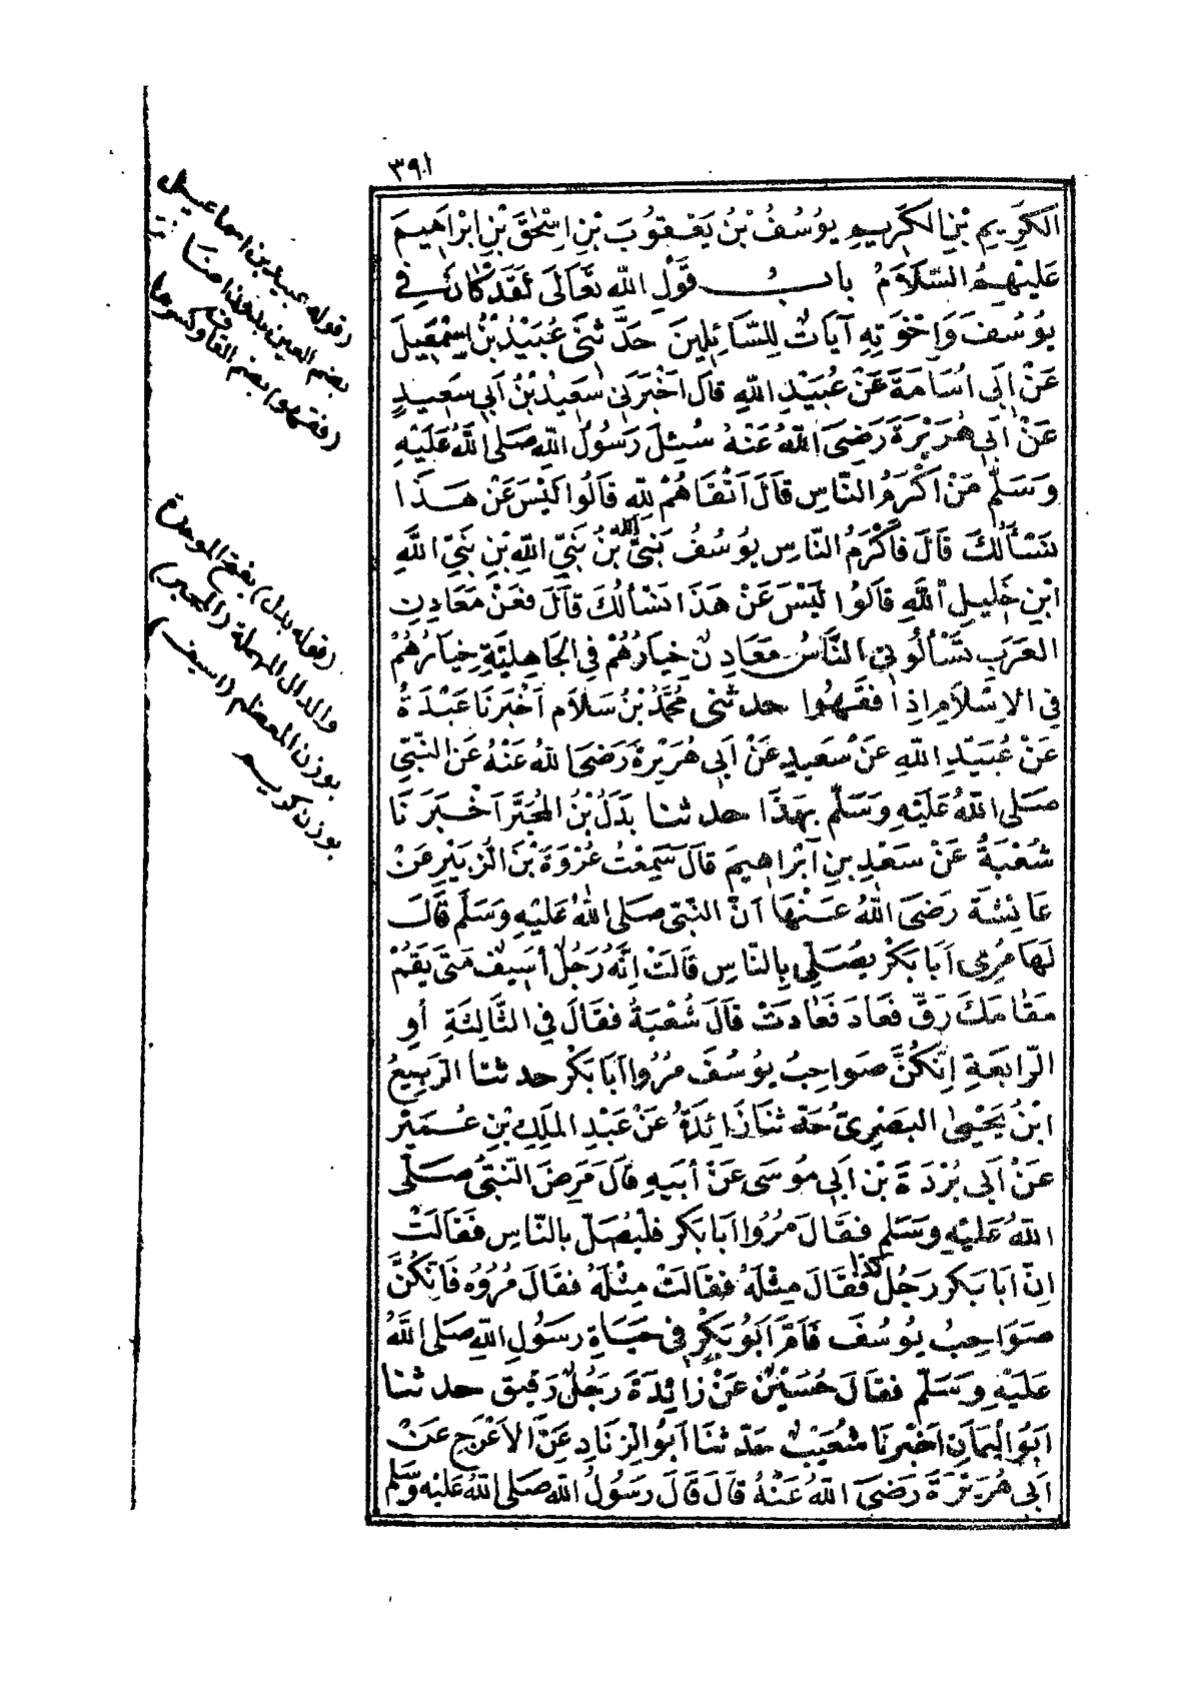 ٣٩١
الكَرِيمِ بْنِ الكَرِيمِ يُوسُفُ بْنُ يَعْقُوبَ بْنِ اِسْحٰقَ بْنِ اِبْرَاهِيمَ
عَلَيْهِمُ السَّلَامُ بابُ قَوْلِ اللّٰهِ تَعَالَى لَقَدْ كَانَ فِي
يُوسُفَ وَاِخْوَتِهِ آيَاتٌ لِلسَّائِلِينَ حَدَّثَنِي عُبَيْدُ بْنُ اِسْمٰعِيلَ
عَنْ اَبِي اُسَامَةَ عَنْ عُبَيْدِ اللّٰهِ قَالَ اَخْبَرَنِي سَعِيدُ بْنُ اَبِي سَعِيدٍ
عَنْ اَبِي هُرَيْرَةَ رَضِيَ اللّٰهُ عَنْهُ سُئِلَ رَسُولُ اللّٰهِ صَلَى اللّٰهُ عَلَيْهِ
وَسَلَّمَ مَنْ اَكْرَمُ النَّاسِ قَالَ اَتْقَاهُمْ لِلّٰهِ قَالُوا لَيْسَ عَنْ هَذَا
نَسْأَلُكَ قَالَ فَاَكْرَمُ النَّاسِ يُوسُفُ نَبِيُّ اللّٰهِ بْنُ نَبِيِّ اللّٰهِ بْنِ نَبِيِّ اللّٰهِ
ابْنِ خَلِيلِ اللّٰهِ قَالُوا لَيْسَ عَنْ هَذَا نَسْأَلُكَ قَالَ فَعَنْ مَعَادِنِ
العَرَبِ تَسْأَلُونِي النَّاسُ مَعَادِنُ خِيَارُهُمْ فِي الجَاهِلِيَّةِ خِيَارُهُمْ
فِي الاِسْلَامِ اِذَا فَقِهُوا حدثنى مُحَمَّدُ بْنُ سَلَامٍ اَخْبَرَنَا عَبْدَةُ
عَنْ عُبَيْدِ اللّٰهِ عَنْ سَعِيدٍ عَنْ اَبِي هُرَيْرَةَ رَضِيَ اللّٰهُ عَنْهُ عَنِ النَّبِيِّ
صَلَى اللّٰهُ عَلَيْهِ وَسَلَّمَ بِهَذَا حدثنا بَدَلُ بْنُ المُحَبَّرِ اَخْبَرَنَا
شُعْبَةُ عَنْ سَعْدِ بنِ اِبْرَاهِيمَ قَالَ سَمِعْتُ عُرْوَةَ بْنَ الزُّبَيْرِ عَنْ
عَائِشَةَ رَضِيَ اللّٰهُ عَنْهَا اَنَّ النَّبِيَّ صَلَى اللّٰهُ عَلَيْهِ وَسَلَّمَ قَالَ
لَهَا مُرِي اَبَا بَكْرٍ يُصَلِّي بِالنَّاسِ قَالَتْ اِنَّهُ رَجُلٌ أَسِيفٌ مَتَى يَقُمْ
مَقَامَكَ رَقَّ فَعَادَ فَعَادَتْ قَالَ شُعْبَةُ فَقَالَ فِي الثَّالِثَةِ أَوِ
الرَّابِعَةِ اِنَّكُنَّ صَوَاحِبُ يُوسُفَ مُرُوا اَبَا بَكْرٍ حدثنا الرَّبِيعُ
ابْنُ يَحْيٰى البَصْرِيُّ حَدَّثَنَا زَائِدَةُ عَنْ عَبْدِ المَلِكِ بْنِ عُمَيْرٍ
عَنْ اَبِي بُرْدَةَ بْنِ اَبِي مُوسَى عَنْ أَبِيهِ قَالَ مَرِضَ النَّبِيُّ صَلَّى
اللّٰهُ عَلَيْهِ وَسَلَّمَ فَقَالَ مُرُوا اَبَا بَكْرٍ فَلْيُصَلِّ بِالنَّاسِ فَقَالَتْ
اِنَّ اَبَا بَكْرٍ رَجُلٌ كذا فَقَالَ مِثْلَهُ فَقَالَتْ مِثْلَهُ فَقَالَ مُرُوهُ فَاِنَّكُنَّ
صَوَاحِبُ يُوسُفَ فَاَمَّ اَبُو بَكْرٍ فِي حَيَاةِ رَسُولِ اللّٰهِ صَلَى اللّٰهُ
عَلَيْهِ وَسَلَّمَ فَقَالَ حُسَيْنٌ عَنْ زَائِدَةَ رَجُلٌ رَقِيقٌ حدثنا
اَبُو اليَمَانِ اَخْبَرَنَا شُعَيْبٌ حَدَّثَنَا اَبُو الزِّنَادِ عَنِ الاَعْرَجِ عَنْ
اَبِي هُرَيْرَةَ رَضِيَ اللّٰهُ عَنْهُ قَالَ قَالَ رَسُولُ اللّٰهِ صَلَى اللّٰهُ عَلَيْهِ وَسَلَّمَ
(قوله عبيد بن اسماعيل
بضم العين
(فقهوا) بضم القاف وكسرها
(قوله بدل) بفتح الموحدة
والدال المهملة (المحبر)
بوزن المعظم (اسيف)
بوزن كريم